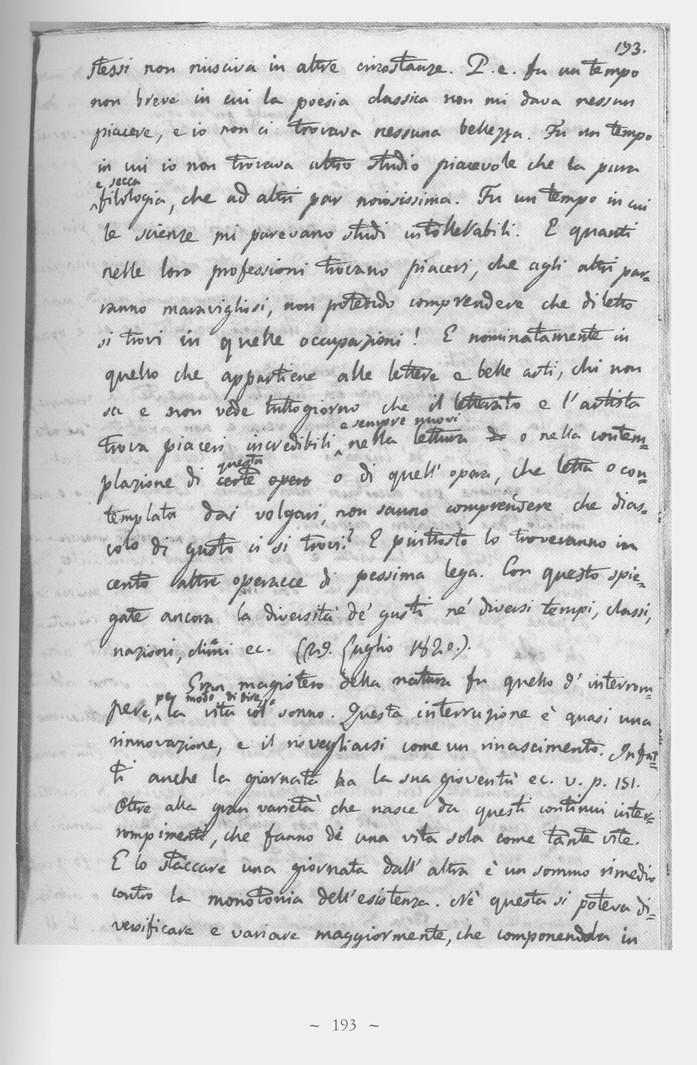 193.
stessi non riusciva in altre circostanze. P. e. fu un tempo
non breve in cui la poesia classica non mi dava nessun
piacere, e io non ci trovava nessuna bellezza. Fu un tempo
in cui io non trovava altro studio piacevole che la pura
e secca
filologia, che ad altri par noiosissima. Fu un tempo in cui
le scienze mi parevano studi intollerabili. E quanti
nelle loro professioni trovano piaceri, che agli altri par-
ranno maravigliosi, non potendo comprendere che diletto
si trovi in quelle occupazioni! E nominatamente in
quello che appartiene alle lettere e belle arti, chi non
sa e non vede tuttogiorno che il letterato e l'artista
e sempre nuovi
trova piaceri incredibili nella lettura o nella contem-
questa
plazione di o di quell'opera, che letta o con-
templata dai volgari, non sanno comprendere che dia-
volo di gusto ci si trovi? E piuttosto lo troveranno in
cento altre operacce di pessima lega. Con questo spie-
gate ancora la diversità de' gusti ne' diversi tempi, classi,
nazioni, climi ec. (29. Luglio 1820.).
Gran magistero della natura fu quello d'interrom-
per modo di dire
pere, la vita col sonno. Questa interruzione è quasi una
rinnovazione, e il risvegliarsi come un rinascimento. Infat-
ti anche la giornata ha la sua gioventù ec. v. p. 151.
Oltre alla gran varietà che nasce da questi continui inter-
rompimenti, che fanno de una vita sola come tante vite.
E lo staccare una giornata dall'altra è un sommo rimedio
contro la monotonia dell'esistenza. Nè questa si poteva di-
versificare e variare maggiormente, che componendola in
~ 193 ~